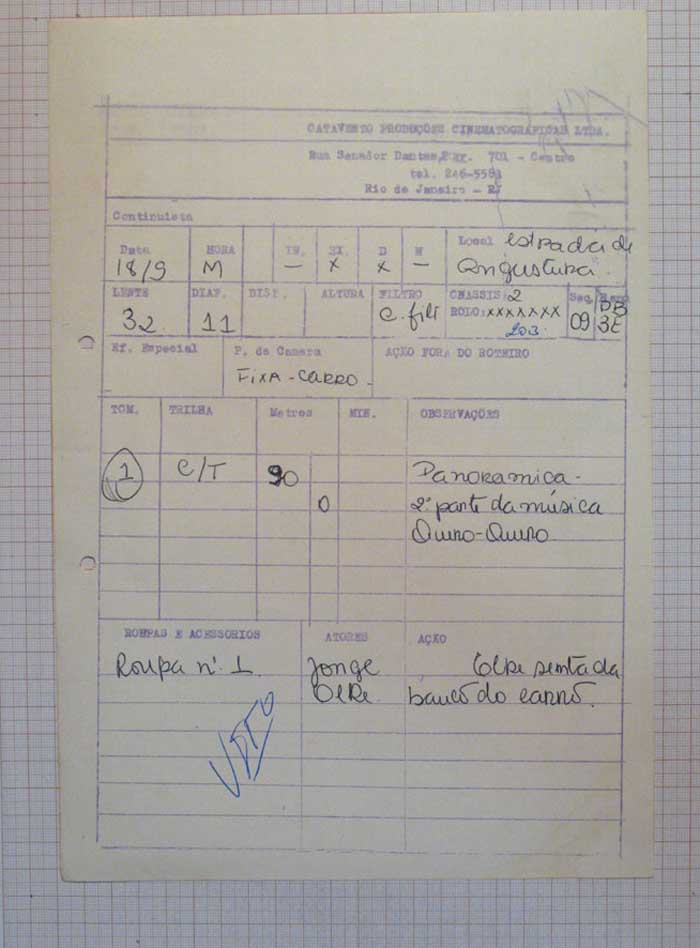 CATAVENTO PRODUÇÕES CINEMATOGRÁFICAS LTDA.
Rua Senador Dantas, 701 - Centro
tel. 246-5583
Rio de Janeiro - RJ
Continuista
Data HORA IN. EX. D N Local estrada de
18/9 M — X X — Angustura
LENTE DIAF. DIST. ALTURA FILTRO CHASSIS: 2 Seq.
32 11 C. filt ROLO: XXXXXXX 09 3E
203
Ef. Especial P. de Camara AÇÃO FORA DO ROTEIRO
FIXA - CARRO -
TOM. TRILHA Metros MIN. OBSERVAÇÕES
1 C/T 90 Panoramica -
0 2ª parte da música
Quero-Quero
ROUPAS E ACESSORIOS ATORES AÇÃO
Roupa nº 1 Jorge sentada
banco do carro.